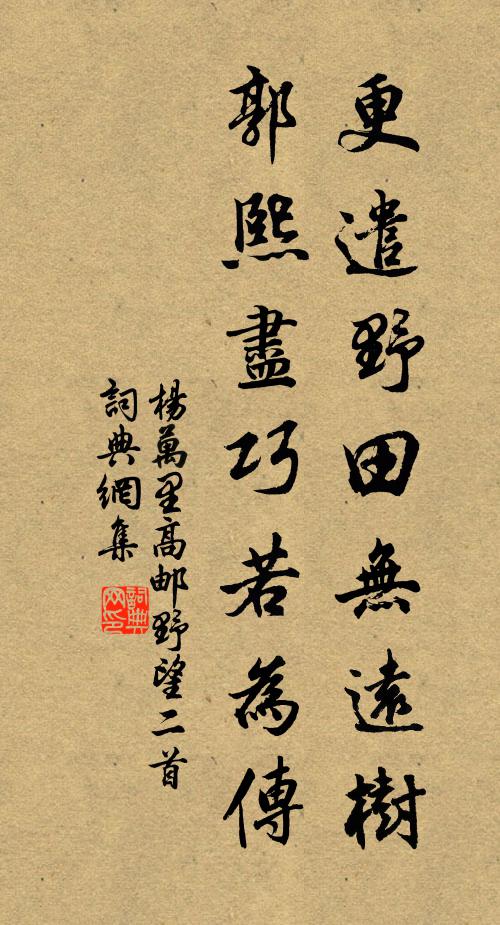 更遣野田無遠樹
郭熙盡巧若為傳
楊萬里高邮野望二首
詞典網集
詞典
网印